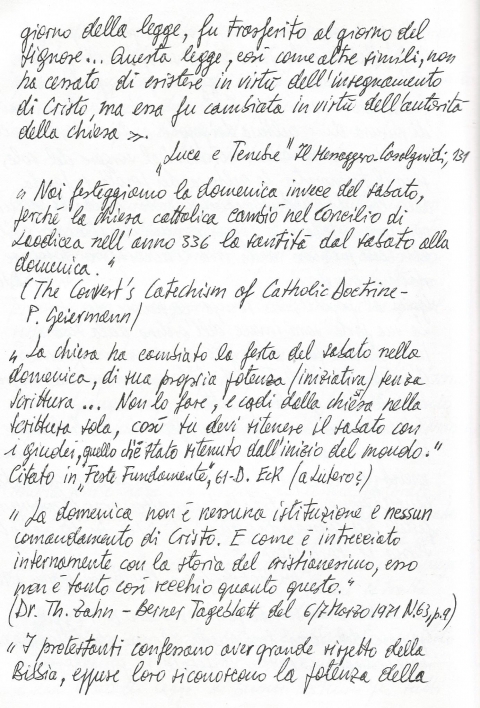 giorno della legge, fu trasferito al giorno del
Signore... Questa legge, così come altre simili, non
ha cessato di esistere in virtù dell'insegnamento
di Cristo, ma essa fu cambiata in virtù dell'autorità
della chiesa ».
„Luce e Tenebre" Il Messaggero-Casalguidi, 131
„ Noi festeggiamo la domenica invece del sabato,
perché la chiesa cattolica cambiò nel Concilio di
Laodicea nell'anno 336 la santità dal sabato alla
domenica."
(The Convert's Catechism of Catholic Doctrine-
P. Geiermann)
„ La chiesa ha cambiato la festa del sabato nella
domenica, di sua propria potenza (iniziativa) senza
scrittura... Non lo fare, e cadi dalla chiesa nella
scrittura sola, così tu devi ritenere il sabato con
i giudei, quello ch'è stato ritenuto dall'inizio del mondo."
Citato in „Feste Fundamente", 61-D. Eck (a Lutero?)
„ La domenica non è nessuna istituzione e nessun
comandamento di Cristo. E come è intrecciato
internamente con la storia del cristianesimo, esso
non è tanto così vecchio quanto questo."
(Dr. Th. Zahn - Berner Tageblatt del 6/7 Marzo 1971 N.63, p.9)
„ I protestanti confessano aver grande rispetto della
Bibbia, eppure loro riconoscono la potenza della